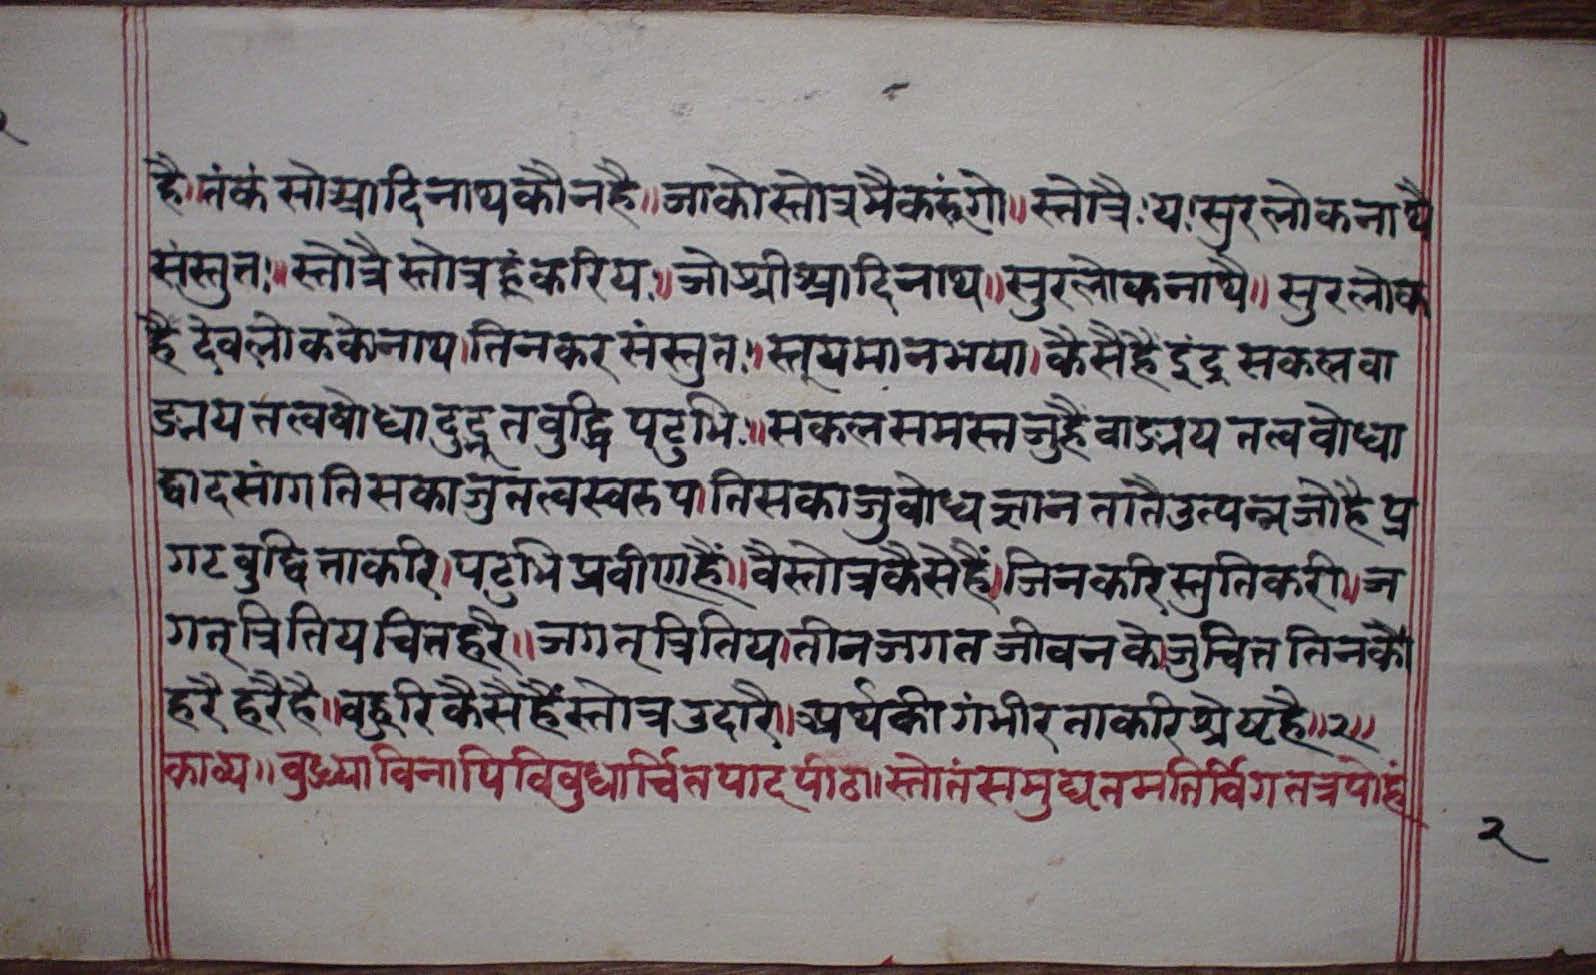 है॥तंकं सोआदिनाथकौनहै॥जाकोस्तोत्रमैकहंगो॥स्तोत्रै!य!सुरलोकनाथै
संस्तुत!॥स्तोत्रै स्तोत्रहूंकरिय!॥जोश्रीआदिनाथ॥सुरलोकनाथै॥सुरलोक
है देवलोककेनाथ।तिनकर संस्तुत!॥स्तूयमानभया।कैसैहैइंद्र सकलवा
ङ्मय तत्वबोधादुद्भूतबुद्धि पटुभि:॥सकलसमस्तजुहैवाङ्मय तत्व वोधा
द्वादसांगतिसकाजुतत्वस्वरुप।तिसकाजुवोध ज्ञान तातैउत्पन्नजोहै प्र
गट वुद्धि ताकरि।पटुभि प्रवीणहैं॥वैस्तोत्रकैसेहैं।जिनकरि स्तुतिकरी॥ज
गत् त्रितिय चितहरै॥जगत् त्रितिय।तीनजगत जीवनके जुचित्त तिनकौ
हरै हरैहै॥वहुरि कैसैहैंस्तोत्र उदारै॥अर्थकी गंभीरताकरि श्रेयहै॥२॥
काव्य॥वुध्याविनापिविवुधार्चितपादपीठ।स्तोतंसमुद्यतमतिर्विगतत्रपोहं
२